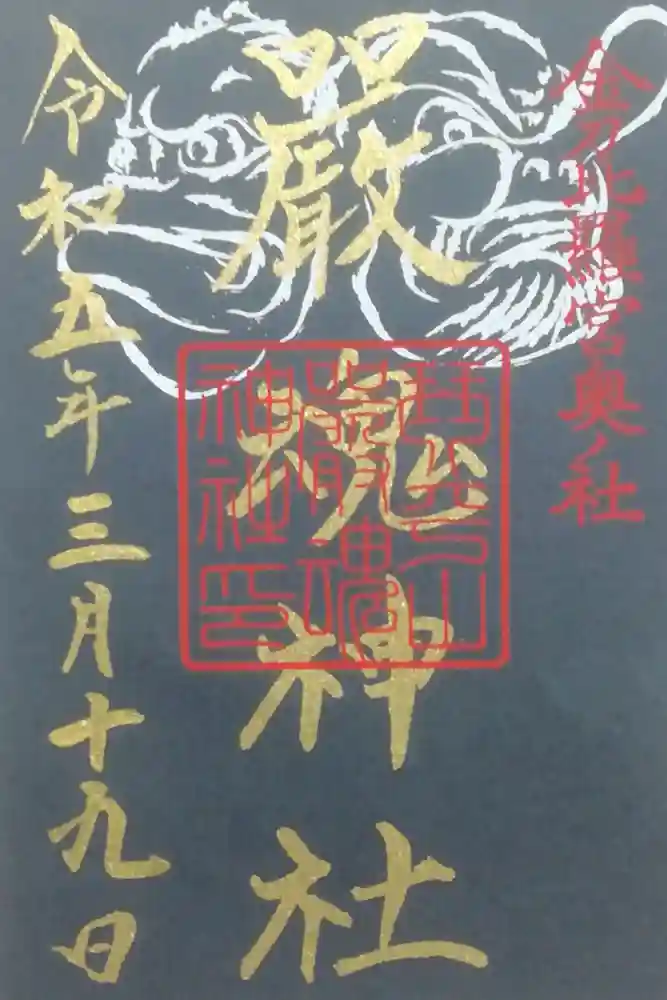 金刀比羅宮奥ノ社
嚴魂神社
琴平山
嚴魂
神社印
令和五年三月十九日